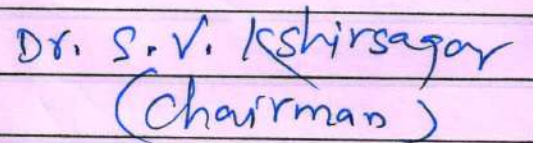 Dr. S. V. Kshirsagar
(Chairman)